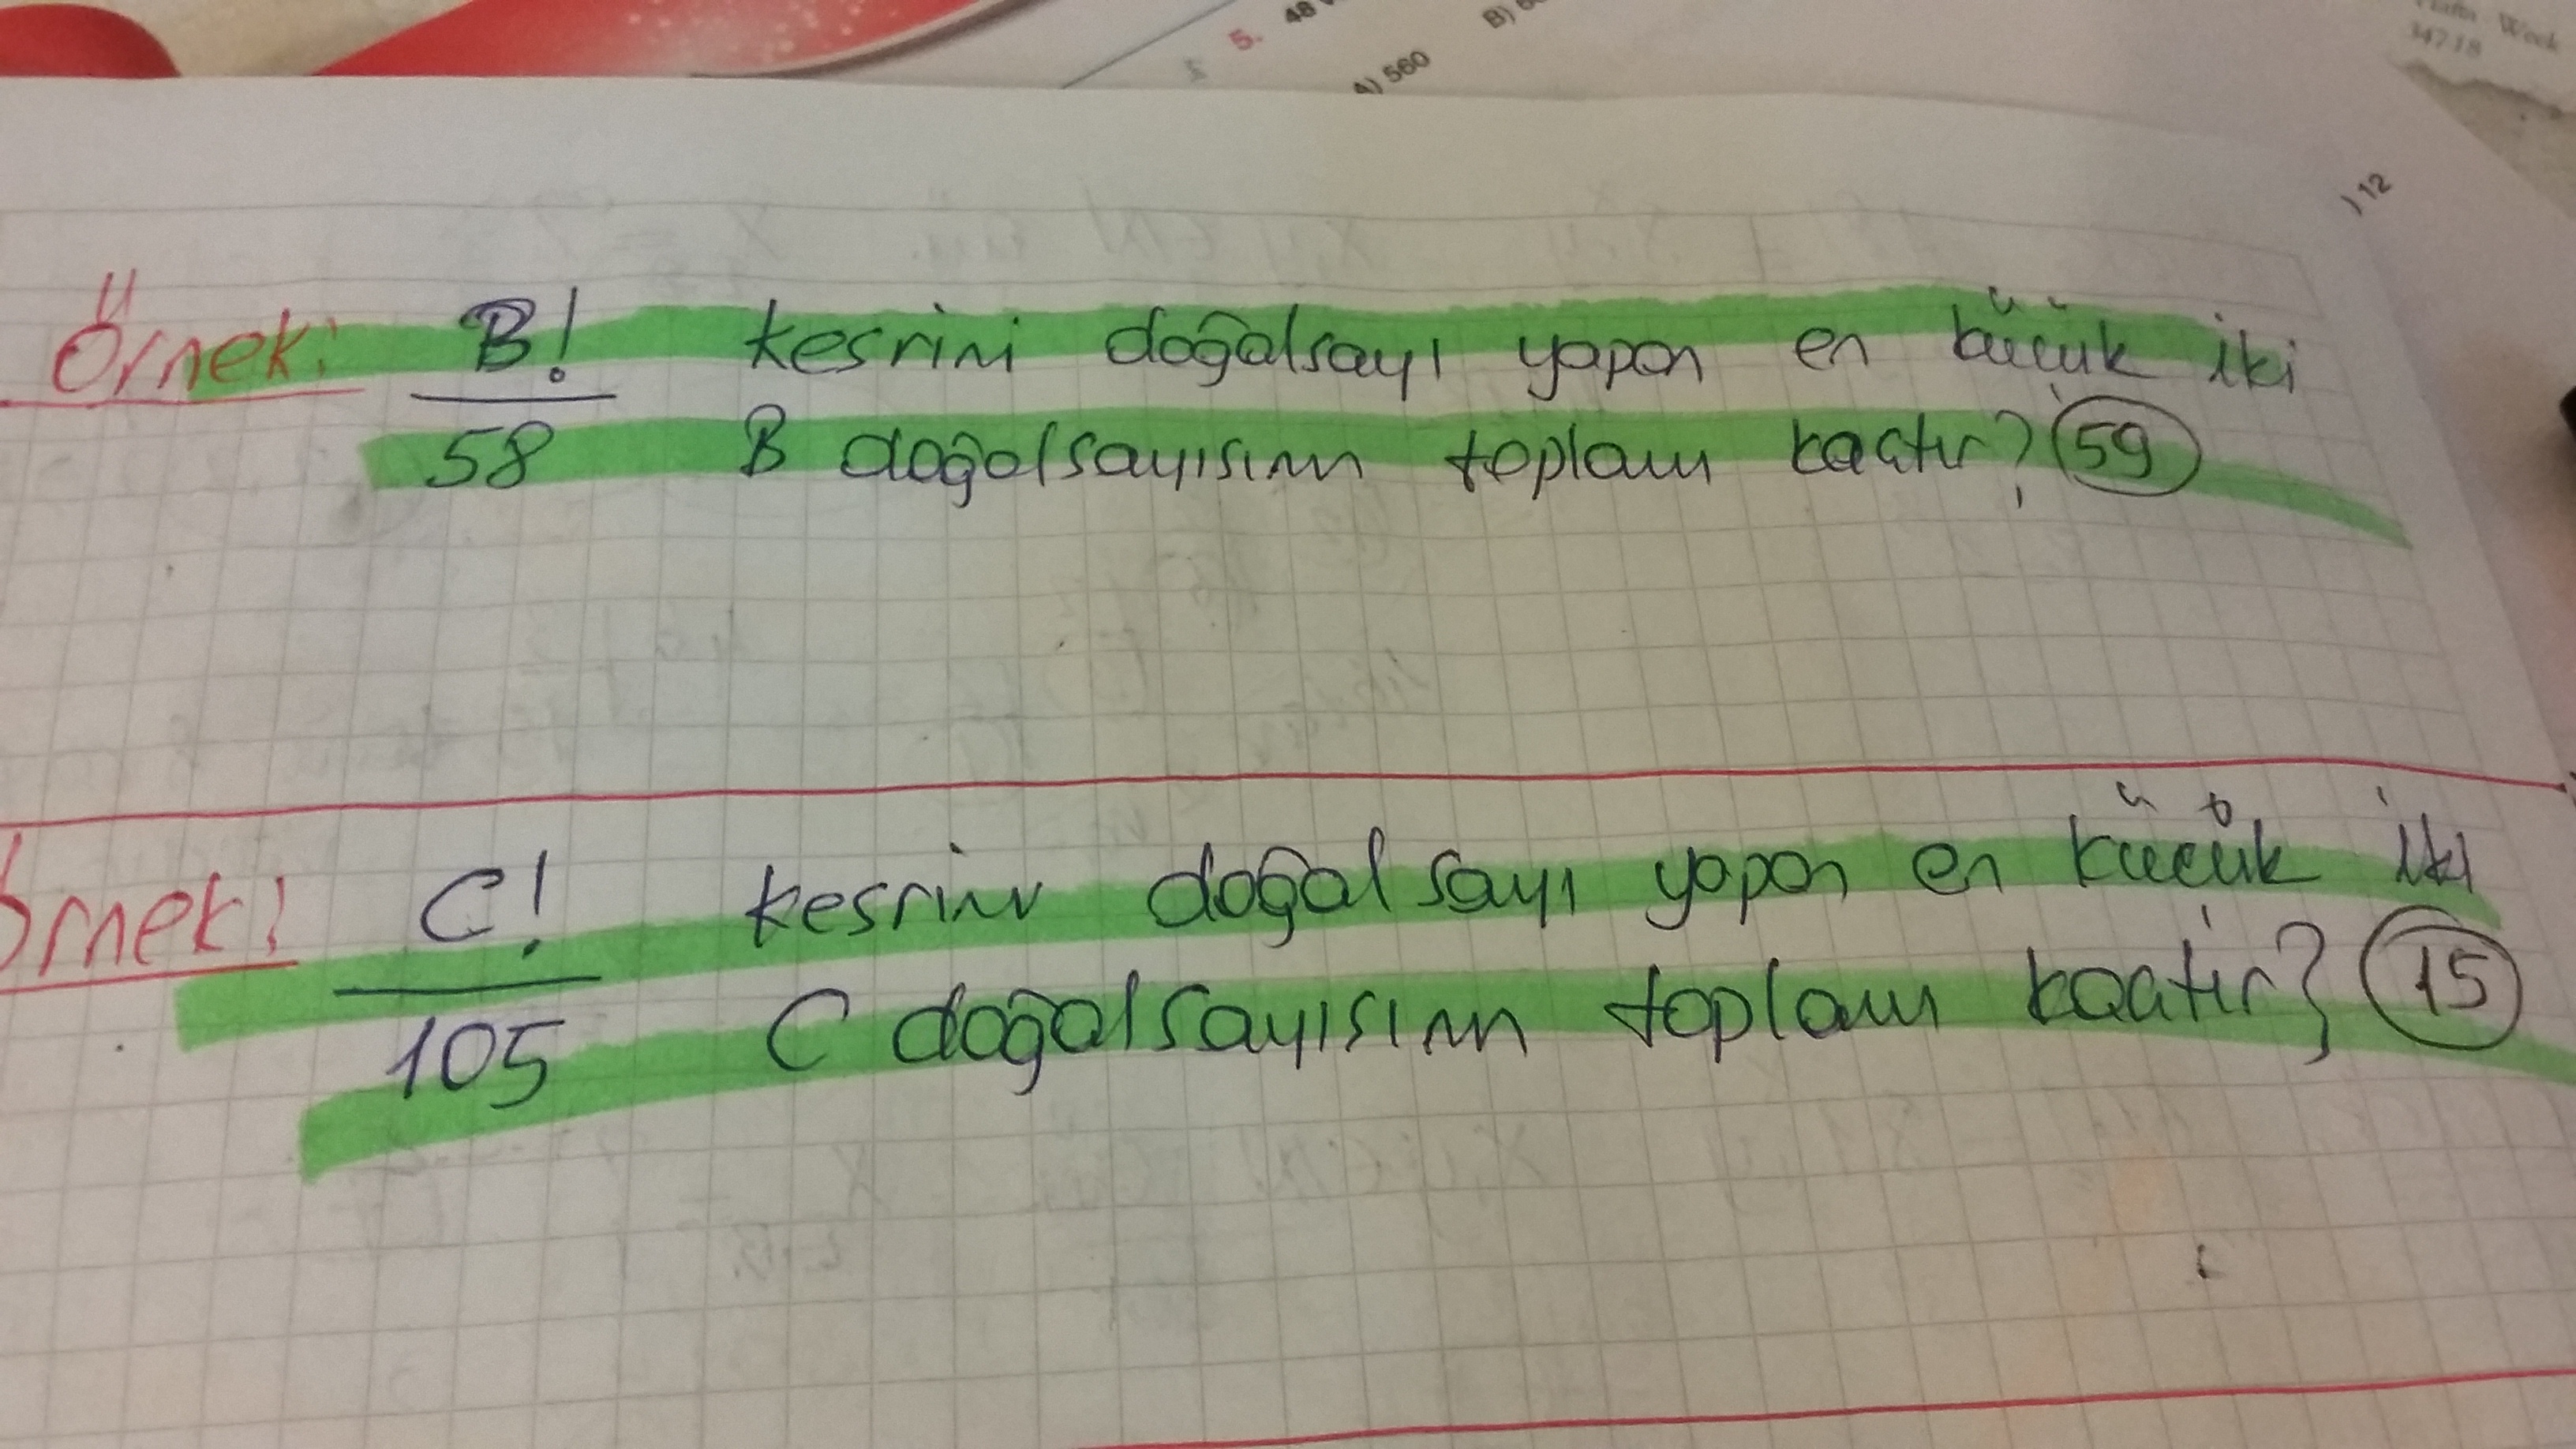 5. 48
B)
A) 560
Week
34718
) 12
Örnek: B! kesrini doğalsayı yapan en küçük iki
58 B doğalsayısının toplamı kaçtır? 59
Örnek: C! kesrini doğal sayı yapan en küçük iki
105 C doğalsayısının toplamı kaçtır? 15